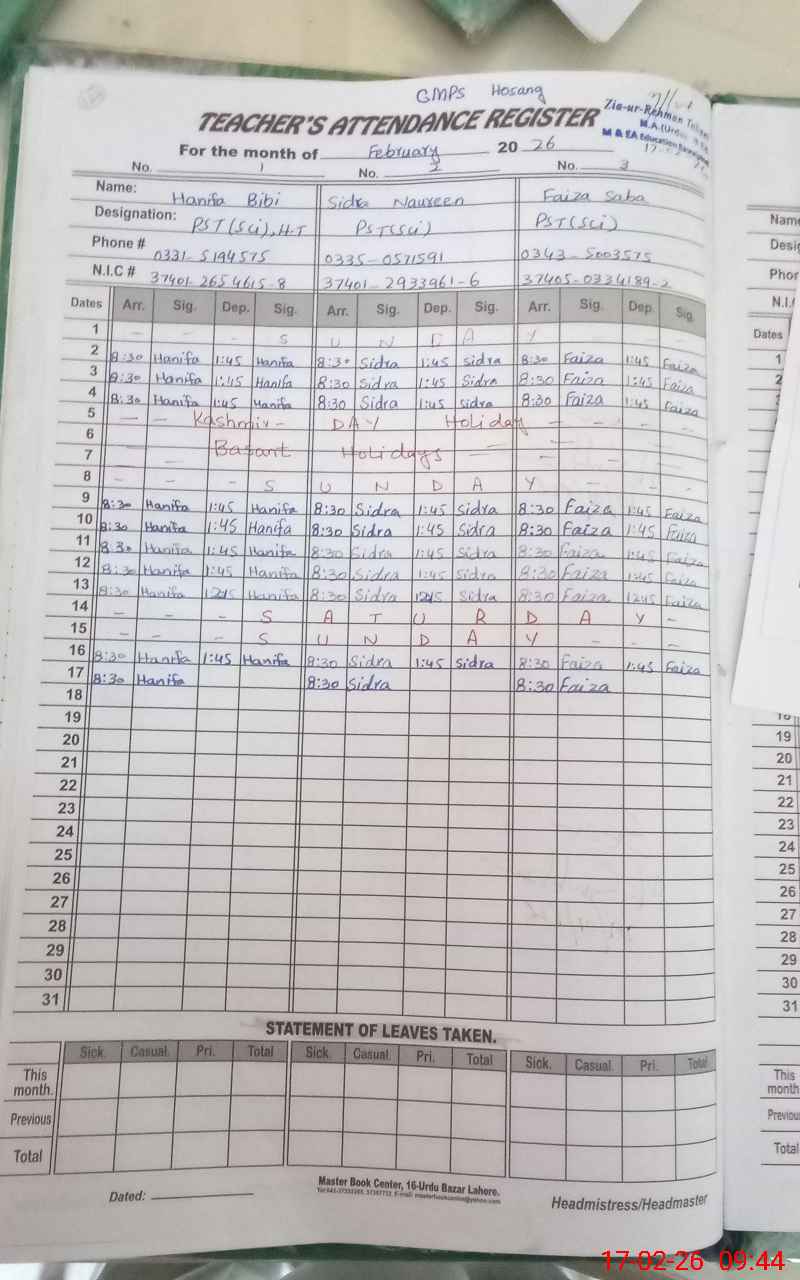 GMPS Hosang
TEACHER'S ATTENDANCE REGISTER
Zia-ur-Rehman
M.A.(Urdu
M & EA Education
For the month of February 2026
No. 1 No. 2 No. 3
Name: Hanifa Bibi Sidra Naureen Faiza Saba
Designation: PST(Sci), H-T PST(Sci) PST(Sci)
Phone # 0331-5194575 0335-0571591 0343-5003575
N.I.C # 37401-2654615-8 37401-2933961-6 37405-0334189-2
Dates Arr. Sig. Dep. Sig. Arr. Sig. Dep. Sig. Arr. Sig. Dep. Sig.
1 - - - S U N D A Y - - -
2 8:30 Hanifa 1:45 Hanifa 8:30 Sidra 1:45 Sidra 8:30 Faiza 1:45 Faiza
3 8:30 Hanifa 1:45 Hanifa 8:30 Sidra 1:45 Sidra 8:30 Faiza 1:45 Faiza
4 8:30 Hanifa 1:45 Hanifa 8:30 Sidra 1:45 Sidra 8:30 Faiza 1:45 Faiza
5 - - Kashmir - DAY Holiday - - - -
6
7 - - Basant Holidays - - - -
8 - - - S U N D A Y - - -
9 8:30 Hanifa 1:45 Hanifa 8:30 Sidra 1:45 Sidra 8:30 Faiza 1:45 Faiza
10 8:30 Hanifa 1:45 Hanifa 8:30 Sidra 1:45 Sidra 8:30 Faiza 1:45 Faiza
11 8:30 Hanifa 1:45 Hanifa 8:30 Sidra 1:45 Sidra 8:30 Faiza 1:45 Faiza
12 8:30 Hanifa 1:45 Hanifa 8:30 Sidra 1:45 Sidra 8:30 Faiza 1:45 Faiza
13 8:30 Hanifa 1245 Hanifa 8:30 Sidra 1245 Sidra 8:30 Faiza 1245 Faiza
14 - - - S A T U R D A Y -
15 - - - S U N D A Y - - -
16 8:30 Hanifa 1:45 Hanifa 8:30 Sidra 1:45 Sidra 8:30 Faiza 1:45 Faiza
17 8:30 Hanifa 8:30 Sidra 8:30 Faiza
18
19
20
21
22
23
24
25
26
27
28
29
30
31
STATEMENT OF LEAVES TAKEN.
Sick. Casual. Pri. Total Sick. Casual. Pri. Total Sick. Casual. Pri. Total
This month.
Previous
Total
Dated:
Master Book Center, 16-Urdu Bazar Lahore.
Headmistress/Headmaster
Name
Phor
N.I.
Dates
1
2
19
20
21
22
23
24
25
26
27
28
29
30
31
This
month
Previou
Total
17-02-26 09:44